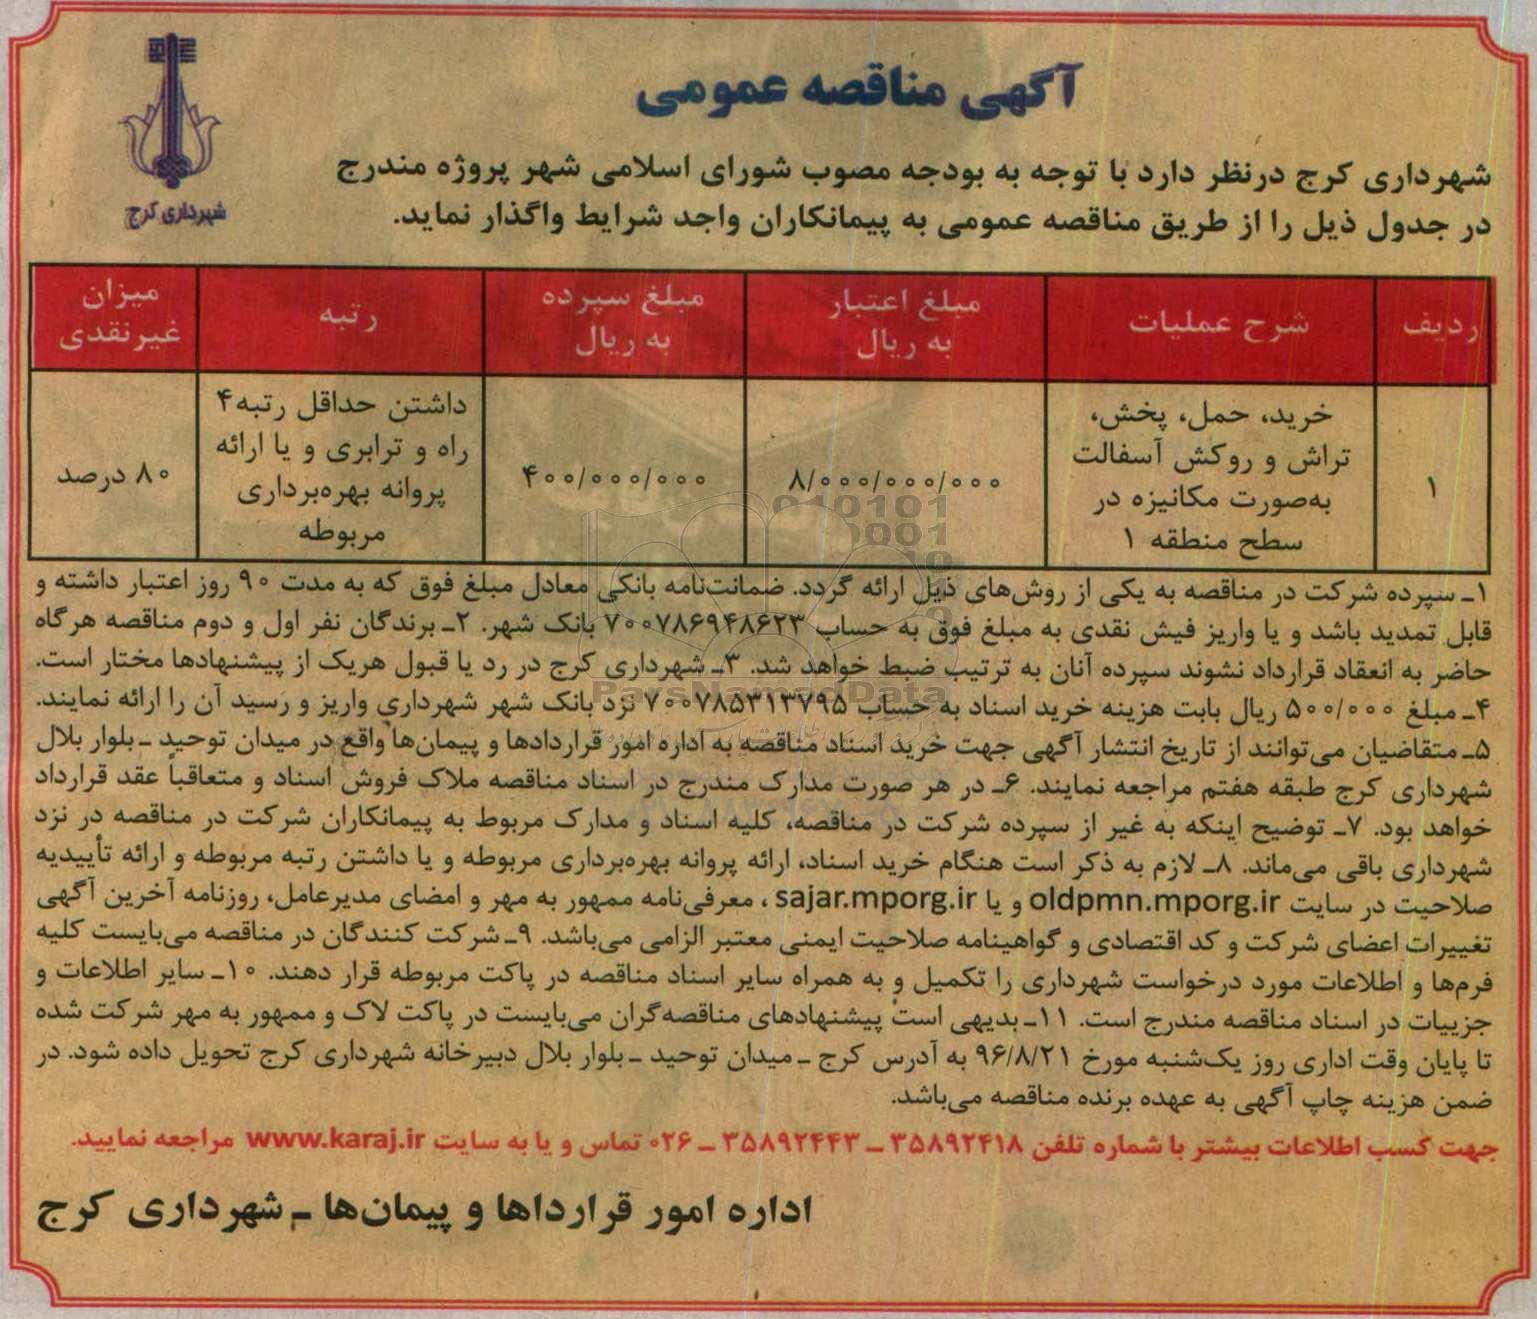 آگهی مناقصه عمومی
شهرداری کرج
شهرداری کرج درنظر دارد با توجه به بودجه مصوب شورای اسلامی شهر پروژه مندرج
در جدول ذیل را از طریق مناقصه عمومی به پیمانکاران واجد شرایط واگذار نماید.
ردیف
شرح عملیات
مبلغ اعتبار
به ریال
مبلغ سپرده
به ریال
رتبه
میزان
غیرنقدی
۱
خرید، حمل، پخش،
تراش و روکش آسفالت
به‌صورت مکانیزه در
سطح منطقه ۱
۸/۰۰۰/۰۰۰/۰۰۰
۴۰۰/۰۰۰/۰۰۰
داشتن حداقل رتبه۴
راه و ترابری و یا ارائه
پروانه بهره‌برداری
مربوطه
۸۰ درصد
۱ـ سپرده شرکت در مناقصه به یکی از روش‌های ذیل ارائه گردد. ضمانت‌نامه بانکی معادل مبلغ فوق که به مدت ۹۰ روز اعتبار داشته و
قابل تمدید باشد و یا واریز فیش نقدی به مبلغ فوق به حساب ۷۰۰۷۸۶۹۴۸۶۲۳ بانک شهر. ۲ـ برندگان نفر اول و دوم مناقصه هرگاه
حاضر به انعقاد قرارداد نشوند سپرده آنان به ترتیب ضبط خواهد شد. ۳ـ شهرداری کرج در رد یا قبول هریک از پیشنهادها مختار است.
۴ـ مبلغ ۵۰۰/۰۰۰ ریال بابت هزینه خرید اسناد به حساب ۷۰۰۷۸۵۳۱۳۷۹۵ نزد بانک شهر شهرداری واریز و رسید آن را ارائه نمایند.
۵ـ متقاضیان می‌توانند از تاریخ انتشار آگهی جهت خرید اسناد مناقصه به اداره امور قراردادها و پیمان‌ها واقع در میدان توحید ـ بلوار بلال
شهرداری کرج طبقه هفتم مراجعه نمایند. ۶ـ در هر صورت مدارک مندرج در اسناد مناقصه ملاک فروش اسناد و متعاقباً عقد قرارداد
خواهد بود. ۷ـ توضیح اینکه به غیر از سپرده شرکت در مناقصه، کلیه اسناد و مدارک مربوط به پیمانکاران شرکت در مناقصه در نزد
شهرداری باقی می‌ماند. ۸ـ لازم به ذکر است هنگام خرید اسناد، ارائه پروانه بهره‌برداری مربوطه و یا داشتن رتبه مربوطه و ارائه تأییدیه
صلاحیت در سایت oldpmn.mporg.ir و یا sajar.mporg.ir ، معرفی‌نامه ممهور به مهر و امضای مدیرعامل، روزنامه آخرین آگهی
تغییرات اعضای شرکت و کد اقتصادی و گواهینامه صلاحیت ایمنی معتبر الزامی می‌باشد. ۹ـ شرکت کنندگان در مناقصه می‌بایست کلیه
فرم‌ها و اطلاعات مورد درخواست شهرداری را تکمیل و به همراه سایر اسناد مناقصه در پاکت مربوطه قرار دهند. ۱۰ـ سایر اطلاعات و
جزییات در اسناد مناقصه مندرج است. ۱۱ـ بدیهی است پیشنهادهای مناقصه‌گران می‌بایست در پاکت لاک و ممهور به مهر شرکت شده
تا پایان وقت اداری روز یک‌شنبه مورخ ۹۶/۸/۲۱ به آدرس کرج ـ میدان توحید ـ بلوار بلال دبیرخانه شهرداری کرج تحویل داده شود. در
ضمن هزینه چاپ آگهی به عهده برنده مناقصه می‌باشد.
جهت کسب اطلاعات بیشتر با شماره تلفن ۳۵۸۹۲۴۱۸ ـ ۳۵۸۹۲۴۴۳ ـ ۰۲۶ تماس و یا به سایت www.karaj.ir مراجعه نمایید.
اداره امور قراردادها و پیمان‌ها ـ شهرداری کرج